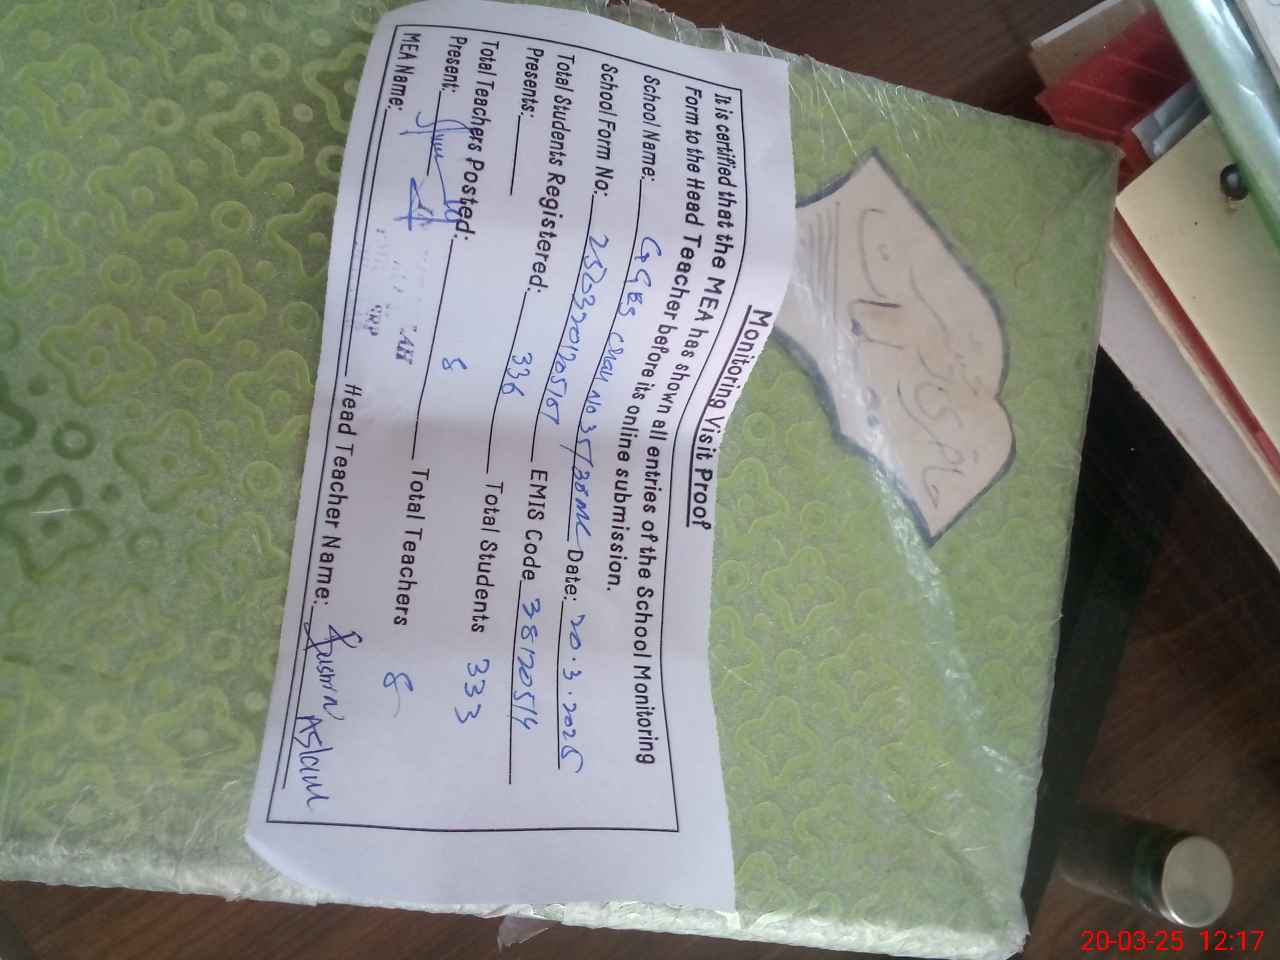 Monitoring Visit Proof
It is certified that the MEA has shown all entries of the School Monitoring
Form to the Head Teacher before its online submission.
School Name: GGES Chak No 35/30MC Date: 20.3.2025
School Form No: EMIS Code 38120514
Total Students Registered: 336 Total Students 333
Presents:
Total Teachers Posted: 8 Total Teachers 8
Present:
MEA Name: Head Teacher Name: Aslam
20-03-25 12:17